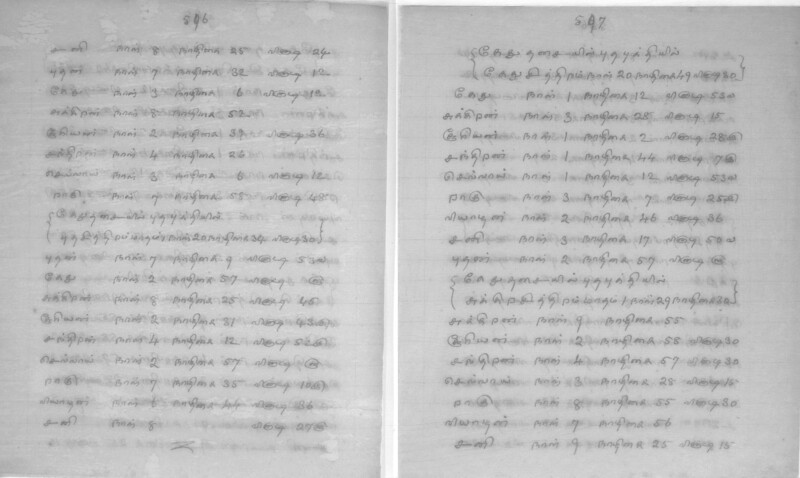 596
சனி நாள் 8 நாழிகை 25 வினாடி 24
புதன் நாள் 7 நாழிகை 32 வினாடி 12
கேது நாள் 3 நாழிகை 6 வினாடி 12
சுக்கிரன் நாள் 8 நாழிகை 52
சூரியன் நாள் 2 நாழிகை 39 வினாடி 36
சந்திரன் நாள் 4 நாழிகை 26
செவ்வாய் நாள் 3 நாழிகை 6 வினாடி 12
ராகு நாள் 7 நாழிகை 58 வினாடி 48
கேது தசையில் புதபுத்தியில்
புதசித்திரம் நாள் 20 நாழிகை 34 வினாடி 30
புதன் நாள் 7 நாழிகை 9 வினாடி
கேது நாள் 2 நாழிகை 57 வினாடி
சுக்கிரன் நாள் 8 நாழிகை 25 வினாடி 45
சூரியன் நாள் 2 நாழிகை 31 வினாடி 43
சந்திரன் நாள் 4 நாழிகை 12 வினாடி 52
செவ்வாய் நாள் 2 நாழிகை 57 வினாடி
ராகு நாள் 7 நாழிகை 35 வினாடி 10
வியாழன் நாள் 6 நாழிகை 44 வினாடி 36
சனி நாள் 8 வினாடி 27
597
கேது தசையில் புதபுத்தியில்
கேது சித்திரம் நாள் 20 நாழிகை 49 வினாடி 30
கேது நாள் 1 நாழிகை 12 வினாடி 53
சுக்கிரன் நாள் 3 நாழிகை 28 வினாடி 15
சூரியன் நாள் 1 நாழிகை 2 வினாடி 28
சந்திரன் நாள் 1 நாழிகை 44 வினாடி 7
செவ்வாய் நாள் 1 நாழிகை 12 வினாடி 53
ராகு நாள் 3 நாழிகை 7 வினாடி 25
வியாழன் நாள் 2 நாழிகை 46 வினாடி 36
சனி நாள் 3 நாழிகை 17 வினாடி
புதன் நாள் 2 நாழிகை 57 வினாடி
கேது தசையில் புதபுத்தியில்
சுக்கிரசித்திரம் மாதம் 1 நாள் 29 நாழிகை 30
சுக்கிரன் நாள் 9 நாழிகை 55
சூரியன் நாள் 2 நாழிகை 58 வினாடி 30
சந்திரன் நாள் 4 நாழிகை 57 வினாடி 30
செவ்வாய் நாள் 3 நாழிகை 28 வினாடி 15
ராகு நாள் 8 நாழிகை 55 வினாடி 30
வியாழன் நாள் 7 நாழிகை 56
சனி நாள் 9 நாழிகை 25 வினாடி 15